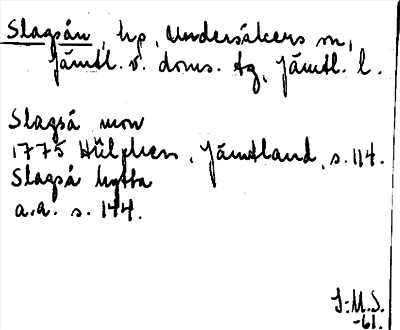 Slagsån, hp, Undersåkers sn,
Jämtl. v. doms. tg, Jämtl. l.
Slagså mon
1775 Hülphers, Jämtland, s. 114.
Slagså hytta
a.a. s. 144.
J:M.S.
-61.